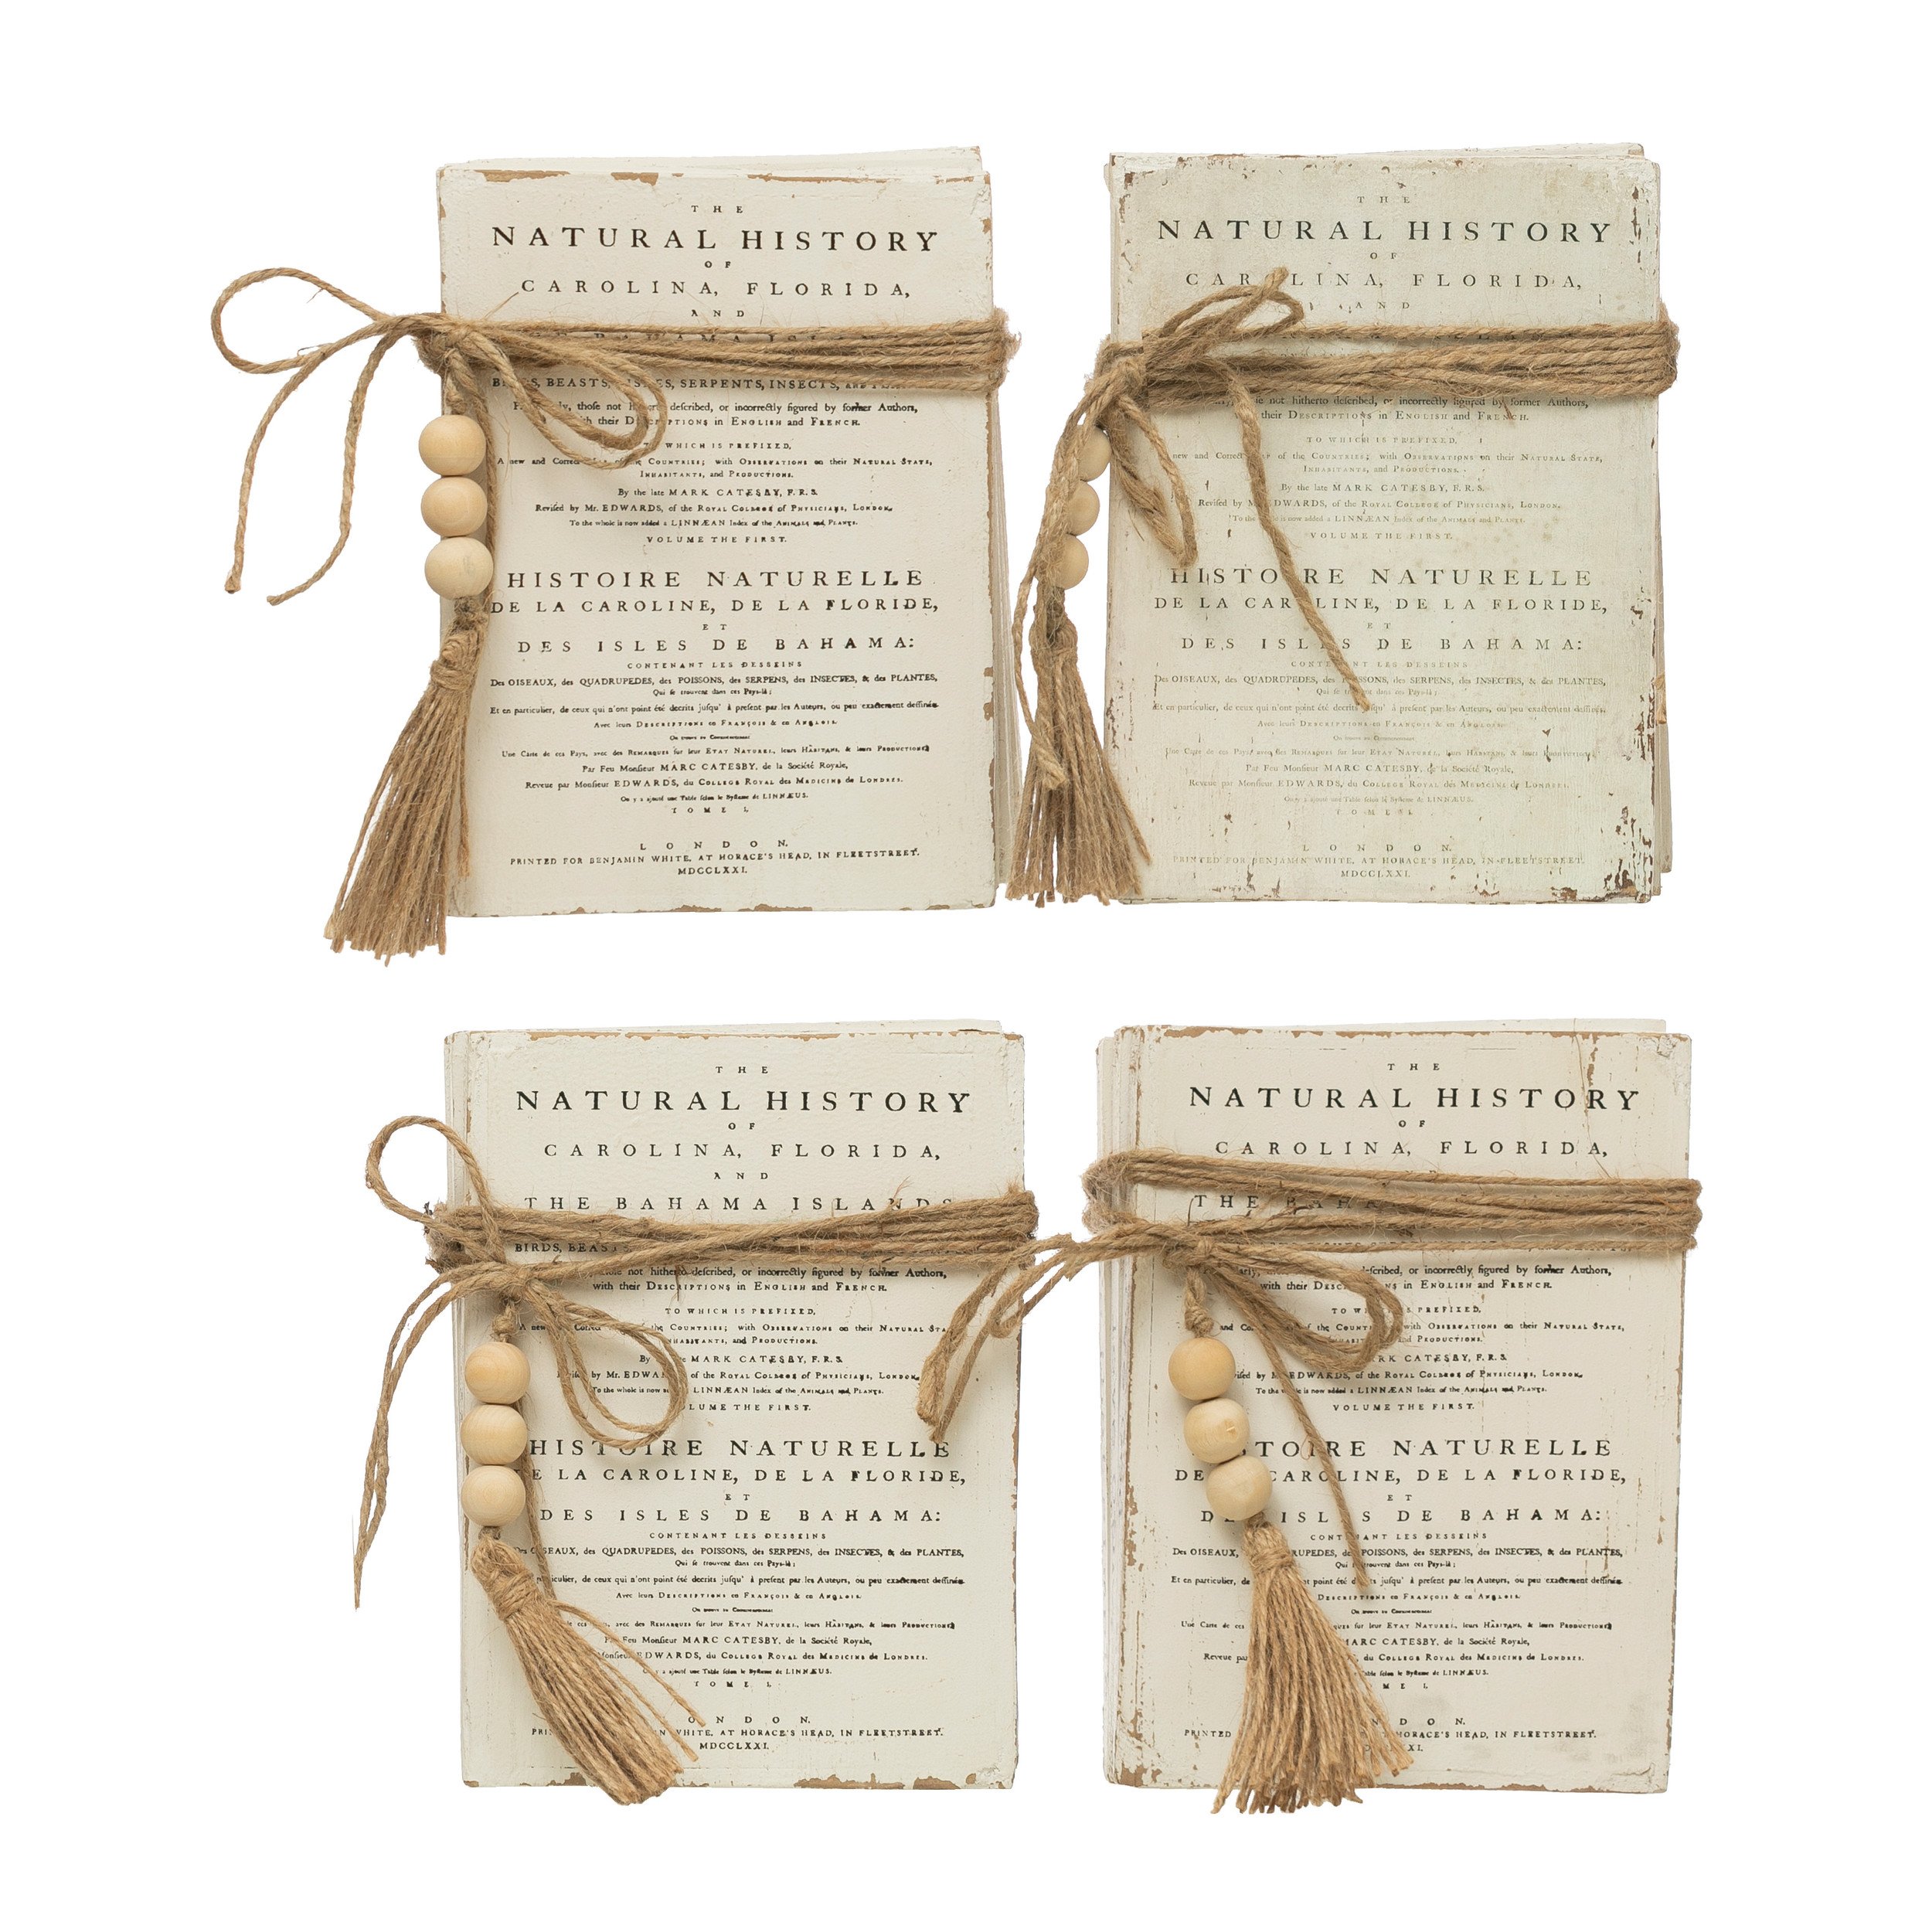 THE
NATURAL HISTORY
OF
CAROLINA, FLORIDA,
AND
BEASTS, SERPENTS, INSECTS, AND
thoſe not deſcribed, or incorrectly figured by former Authors,
with their in ENGLISH and FRENCH.
WHICH IS PREFIXED,
A new and of the COUNTRIES; with OBSERVATIONS on their NATURAL STATE,
INHABITANTS, and PRODUCTIONS.
By the late MARK CATESBY, F.R.S.
Reviſed by Mr. EDWARDS, of the ROYAL COLLEGE of PHYSICIANS, LONDON.
To the whole is now added a LINNÆAN Index of the ANIMALS and PLANTS.
VOLUME THE FIRST.
HISTOIRE NATURELLE
DE LA CAROLINE, DE LA FLORIDE,
ET
DES ISLES DE BAHAMA:
CONTENANT LES DESSEINS
Des OISEAUX, des QUADRUPEDES, des POISSONS, des SERPENS, des INSECTES, & des PLANTES,
Qui ſe trouvent dans ces Pays-là;
Et en particulier, de ceux qui n'ont point été decrits juſqu' à preſent par les Auteurs, ou peu exactement deſſinés.
Avec leurs DESCRIPTIONS en FRANÇOIS & en ANGLOIS.
Une Carte de ces Pays, avec des REMARQUES ſur leur ETAT NATUREL, leurs HABITANS, & leurs PRODUCTIONS;
Par Feu Monſieur MARC CATESBY, de la Société Royale,
Reveue par Monſieur EDWARDS, du COLLEGE ROYAL des MEDICINS de LONDRES.
On y a ajouté une Table ſelon le Syſteme de LINNÆUS.
TOME I.
LONDON.
PRINTED FOR BENJAMIN WHITE, AT HORACE'S HEAD, IN FLEETSTREET.
MDCCLXXI.
THE
NATURAL HISTORY
OF
FLORIDA,
AND
not hitherto deſcribed, or incorrectly figured by former Authors,
their DESCRIPTIONS in ENGLISH and FRENCH.
TO WHICH IS PREFIXED,
new and of the COUNTRIES; with OBSERVATIONS on their NATURAL STATE,
INHABITANTS, and PRODUCTIONS.
By the late MARK CATESBY, F.R.S.
Reviſed by EDWARDS, of the ROYAL COLLEGE of PHYSICIANS, LONDON.
To the is now added a LINNÆAN Index of the ANIMALS and PLANTS.
VOLUME THE FIRST.
NATURELLE
DE LA DE LA FLORIDE,
ET
DES DE BAHAMA:
LES DESSEINS
Des OISEAUX, des QUADRUPEDES, des des SERPENS, des INSECTES, & des PLANTES,
Qui ſe dans ces Pays-là;
Et en particulier, de ceux qui n'ont point été decrits juſqu' à preſent par les Auteurs, ou peu exactement deſſinés.
Avec leurs DESCRIPTIONS en FRANÇOIS & en ANGLOIS.
Une Carte de ces Pays, avec des REMARQUES ſur leur ETAT NATUREL, leurs HABITANS, & leurs PRODUCTIONS;
Par Feu Monſieur MARC CATESBY, de la Société Royale,
Reveue par Monſieur EDWARDS, du COLLEGE ROYAL des MEDICINS de LONDRES.
On y a ajouté une Table ſelon le Syſteme de LINNÆUS.
TOME I.
LONDON.
PRINTED FOR BENJAMIN WHITE, AT HORACE'S HEAD, IN FLEETSTREET.
MDCCLXXI.
THE
NATURAL HISTORY
OF
CAROLINA, FLORIDA,
AND
THE BAHAMA ISLANDS
BIRDS, BEASTS
not hitherto deſcribed, or incorrectly figured by former Authors,
with their DESCRIPTIONS in ENGLISH and FRENCH.
TO WHICH IS PREFIXED,
A new the COUNTRIES; with OBSERVATIONS on their NATURAL
INHABITANTS, and PRODUCTIONS.
By MARK CATESBY, F.R.S.
by Mr. of the ROYAL COLLEGE of PHYSICIANS, LONDON.
To the whole is now LINNÆAN Index of the ANIMALS and PLANTS.
THE FIRST.
HISTOIRE NATURELLE
LA CAROLINE, DE LA FLORIDE,
ET
DES ISLES DE BAHAMA:
CONTENANT LES DESSEINS
Des des QUADRUPEDES, des POISSONS, des SERPENS, des INSECTES, & des PLANTES,
Qui ſe trouvent dans ces Pays-là;
de ceux qui n'ont point été decrits juſqu' à preſent par les Auteurs, ou peu exactement deſſinés.
Avec leurs DESCRIPTIONS en FRANÇOIS & en ANGLOIS.
de ces avec des REMARQUES ſur leur ETAT NATUREL, leurs HABITANS, & leurs PRODUCTIONS;
Par Feu Monſieur MARC CATESBY, de la Société Royale,
Monſieur EDWARDS, du COLLEGE ROYAL des MEDICINS de LONDRES.
On y a ajouté une Table ſelon le Syſteme de LINNÆUS.
TOME I.
WHITE, AT HORACE'S HEAD, IN FLEETSTREET.
MDCCLXXI.
THE
NATURAL HISTORY
OF
CAROLINA, FLORIDA,
THE
or incorrectly figured by former Authors,
with their in ENGLISH and FRENCH.
TO PREFIXED,
and of the with OBSERVATIONS on their NATURAL STATE,
and PRODUCTIONS.
CATESBY, F.R.S.
by EDWARDS, of the ROYAL COLLEGE of PHYSICIANS, LONDON.
To the is now added a LINNÆAN Index of the ANIMALS and PLANTS.
VOLUME THE FIRST.
NATURELLE
DE CAROLINE, DE LA FLORIDE,
ET
ISLES DE BAHAMA:
LES DESSEINS
Des OISEAUX, des POISSONS, des SERPENS, des INSECTES, & des PLANTES,
Qui trouvent dans ces Pays-là;
Et en particulier, de point été decrits juſqu' à preſent par les Auteurs, ou peu exactement deſſinés.
DESCRIPTIONS en FRANÇOIS & en ANGLOIS.
Une Carte de ces ſur leur ETAT NATUREL, leurs HABITANS, & leurs PRODUCTIONS;
MARC CATESBY, de la Société Royale,
Reveue par du COLLEGE ROYAL des MEDICINS de LONDRES.
Table ſelon le Syſteme de LINNÆUS.
PRINTED HORACE'S HEAD, IN FLEETSTREET.